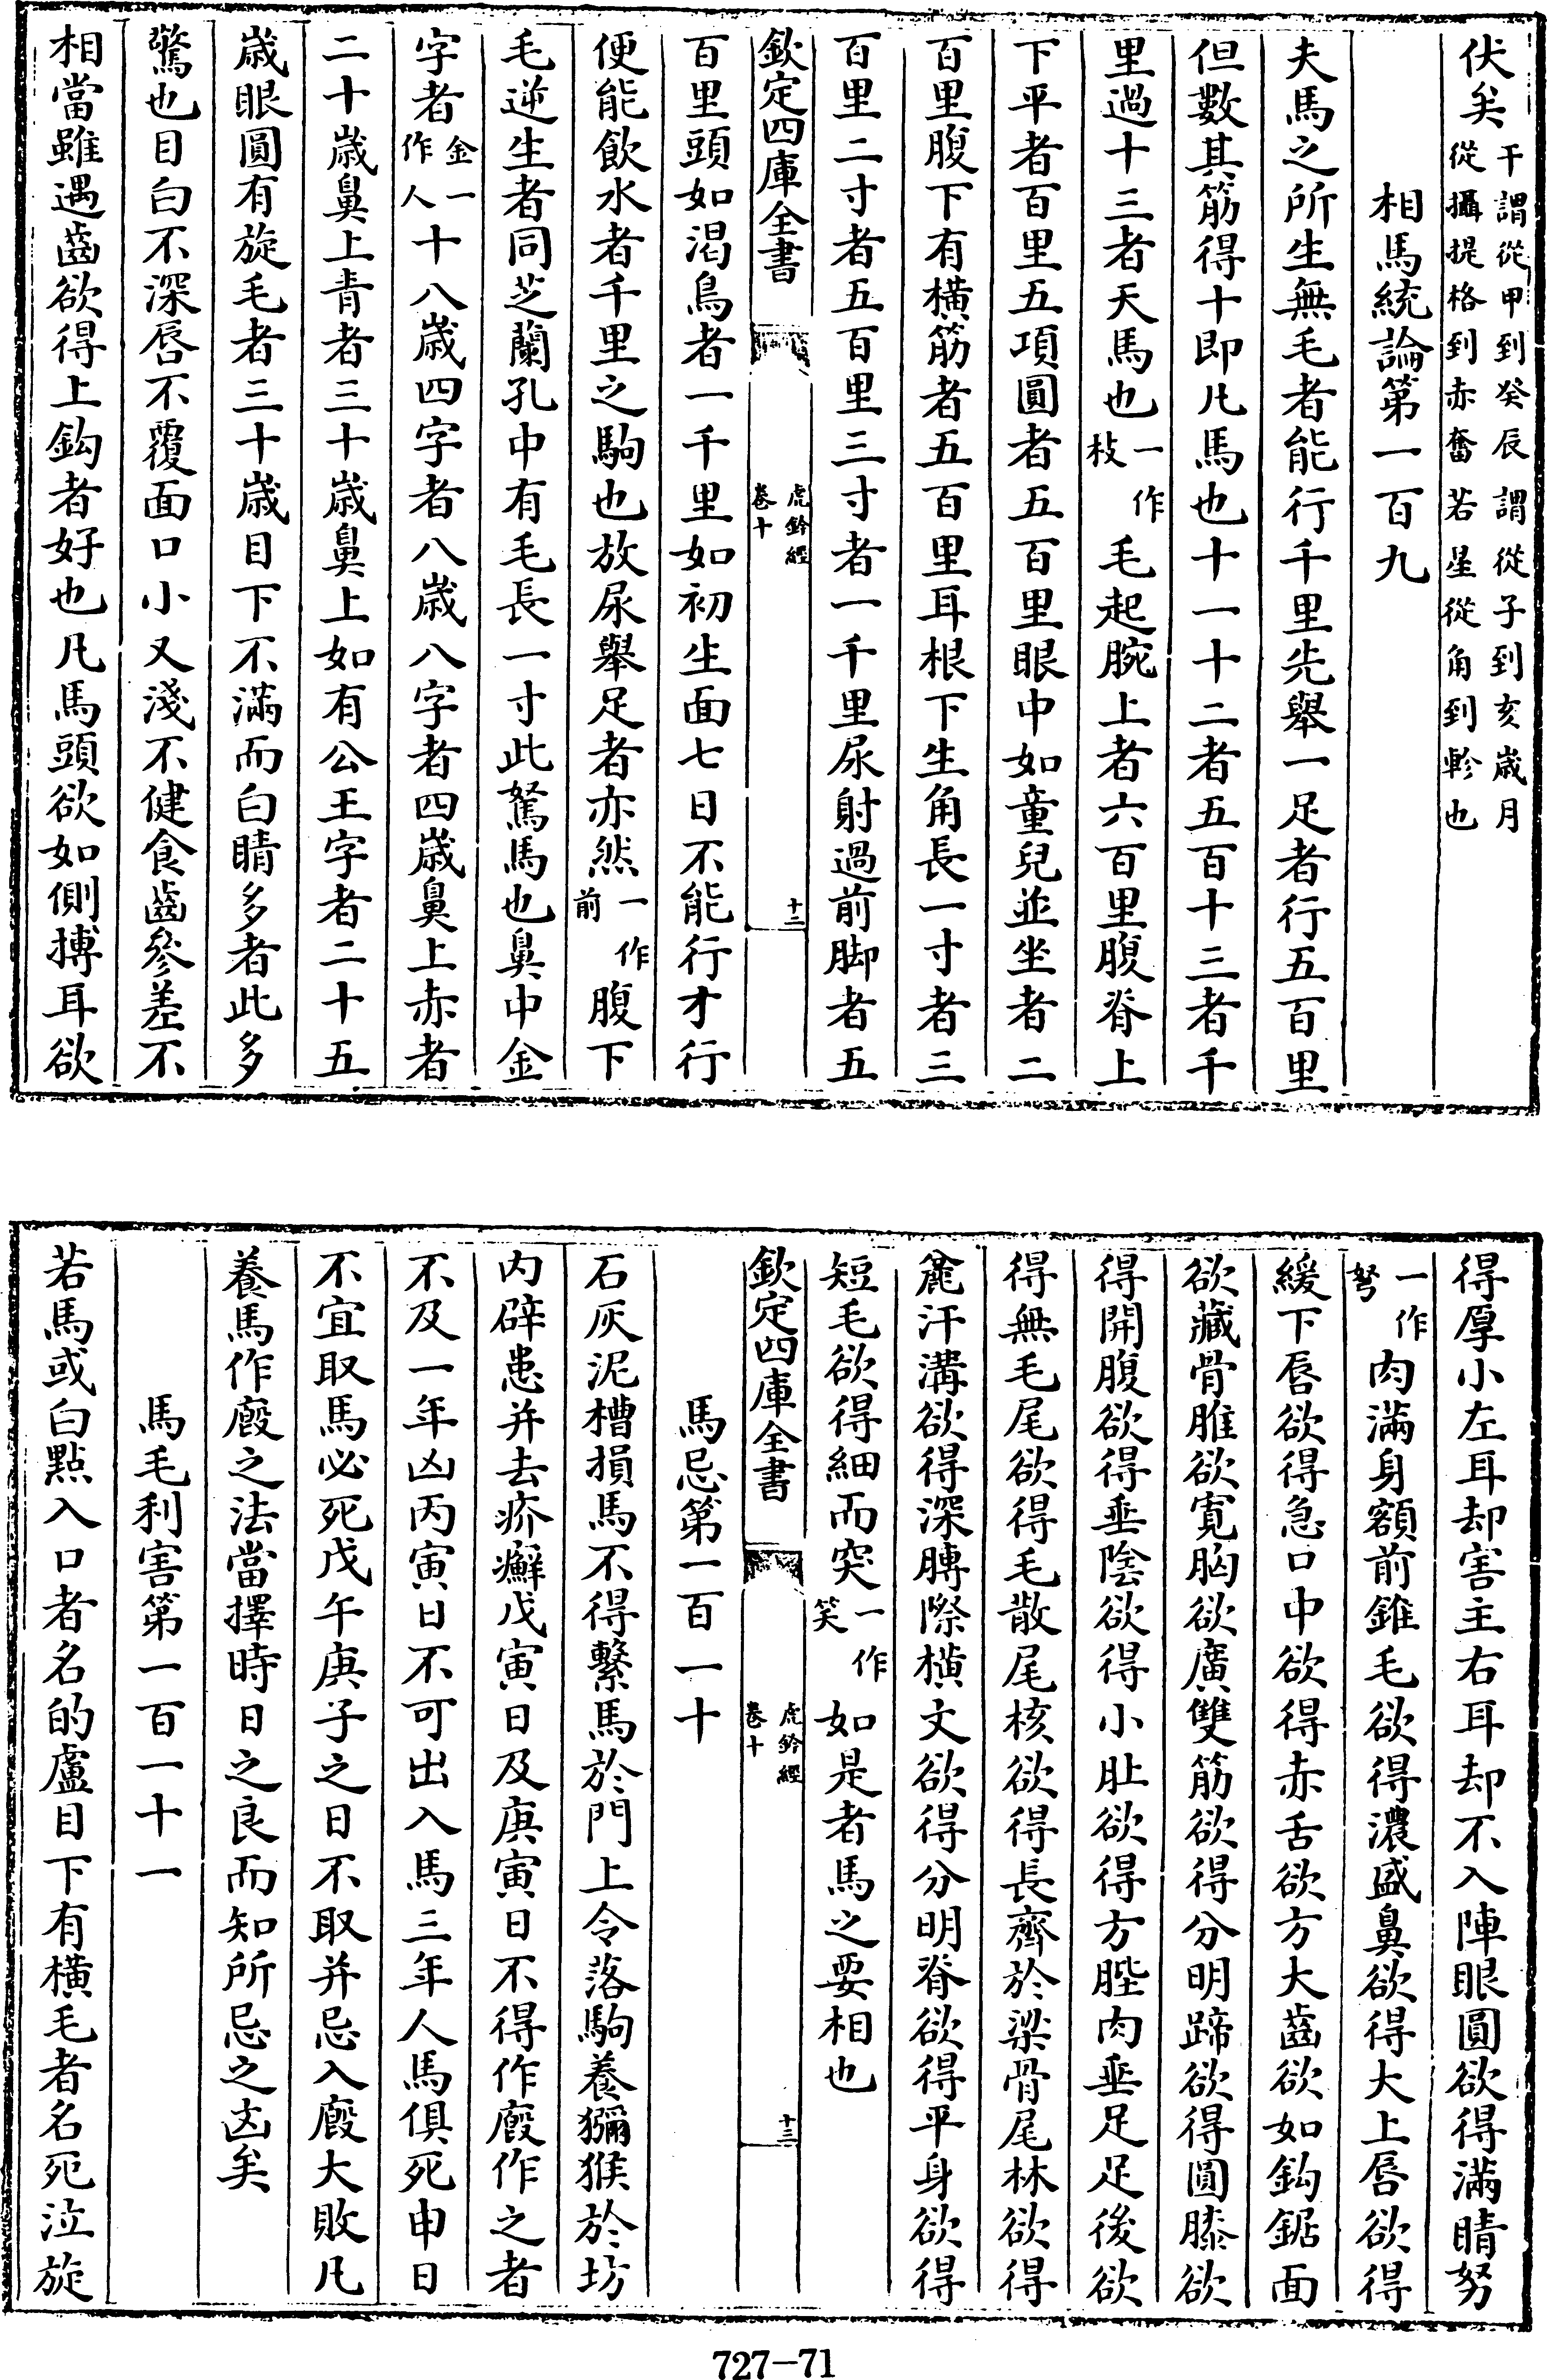 伏矣干謂從甲到癸辰謂從子到亥歲月從攝提格到赤奮若星從角到軫也
相馬統論第一百九
夫馬之所生無毛者能行千里先舉一足者行五百里
但數其筋得十即凡馬也十一十二者五百十三者千
里過十三者天馬也一作枝毛起腕上者六百里腹脊上
下平者百里五項圓者五百里眼中如童兒並坐者二
百里腹下有橫筋者五百里耳根下生角長一寸者三
百里二寸者五百里三寸者一千里尿射過前脚者五
欽定四庫全書
虎鈐經
卷十
十二
百里頭如渴烏者一千里如初生面七日不能行才行
便能飲水者千里之駒也放尿舉足者亦然一作前腹下
毛逆生者同芝蘭孔中有毛長一寸此駑馬也鼻中金
字者金一作人十八歲四字者八歲八字者四歲鼻上赤者
二十歲鼻上青者三十歲鼻上如有公王字者二十五
歲眼圓有旋毛者三十歲目下不滿而白睛多者此多
驚也目白不深唇不覆面口小又淺不健食齒參差不
相當雖遇齒欲得上鈎者好也凡馬頭欲如側搏耳欲
得厚小左耳却害主右耳却不入陣眼圓欲得滿睛努
一作弩肉滿身額前錐毛欲得濃盛鼻欲得大上唇欲得
緩下唇欲得急口中欲得赤舌欲方大齒欲如鈎鋸面
欲藏骨脽欲寬胸欲廣雙筋欲得分明蹄欲得圓膝欲
得開腹欲得垂陰欲得小肚欲得方髀肉垂足足後欲
得無毛尾欲得毛散尾核欲得長齊於梁骨尾林欲得
麄汗溝欲得深膊際橫文欲得分明脊欲得平身欲得
短毛欲得細而突一作笑如是者馬之要相也
欽定四庫全書
虎鈐經
卷十
十三
馬忌第一百一十
石灰泥槽損馬不得繫馬於門上令落駒養獼猴於坊
内辟患并去疥癬戊寅日及庚寅日不得作廄作之者
不及一年凶丙寅日不可出入馬三年人馬俱死申日
不宜取馬必死戊午庚子之日不取并忌入廄大敗凡
養馬作廄之法當擇時日之良而知所忌之凶矣
馬毛利害第一百一十一
若馬或白點入口者名的盧目下有橫毛者名死泣旋
727-71